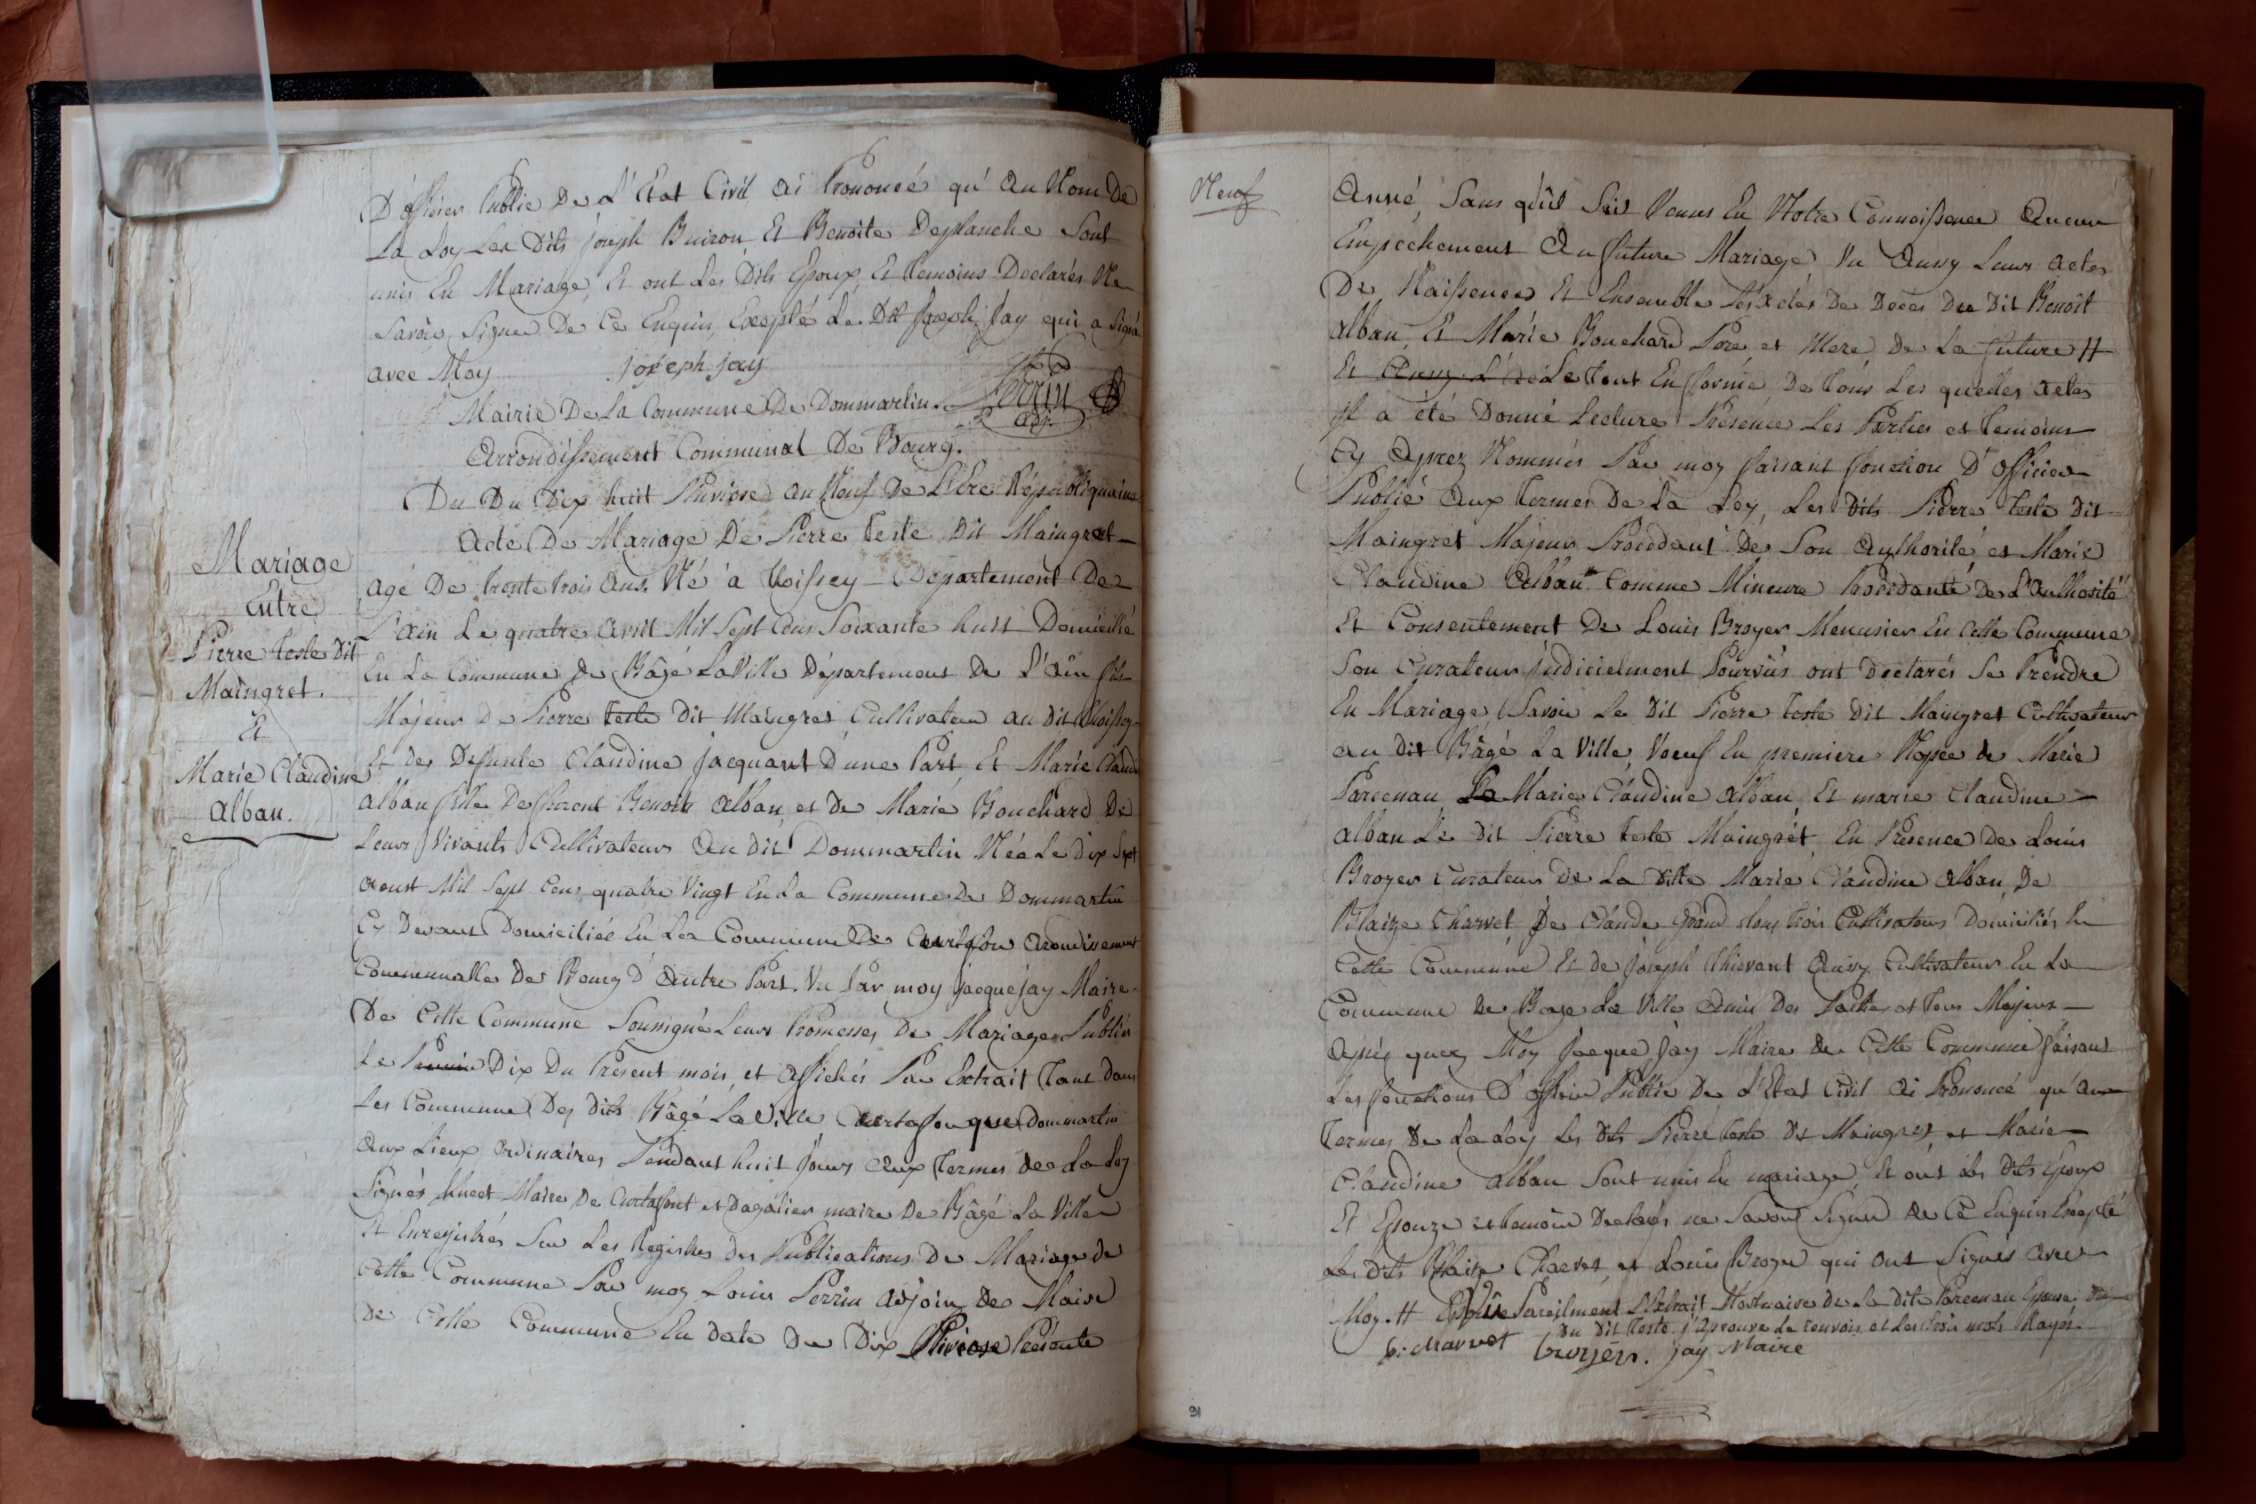 D'officier Public De L'Etat Civil ai Prononcé qu'au Nom De
La Loy Les Dits joseph Buiron Et Benoite Desplanche Sont
unis En Mariage, Et ont Les Dits Epoux, Et temoins Declarés Ne
Savoir Signer De Ce Enquis, Excepté Le Dit Joseph Jay qui a Signé
avec Moy joseph jay
Perrin
adj.
Mairie De La Commune De Dommartin.
Arrondissement Communal De Bourg.
Du Du Dix huit Pluviose an Neuf De L'Ere Républiquaine
Mariage
Entre
Pierre teste Dit
Maingret.
Et
Marie Claudine
Alban.
Acte De Mariage De Pierre teste Dit Maingret
agé De trente trois Ans. Né a Thoissey Département De
L'ain Le quatre avril Mil Sept Cens Soixante huit Domicilié
En La Commune De Bâgé La Ville Département de L'ain fils
Majeur De Pierre teste Dit Maingret Cultivateur au dit Thoissey
Et Des Defunte Claudine jacquant D'une Part Et Marie Claud
alban fille De Benoit alban et De Marie Bouchard De
Leurs Vivants Cultivateurs Au Dit Dommartin Née Le Dix Sept
aoust Mil Sept Cens quatre Vingt En La Commune De Dommartin
Cy Devant Domiciliée En La Commune De Curtafon Arondissement
Communalle De Bourg D'Autre Part. Vu Par moy jacque jay Maire
De Cette Commune Soussigné Leurs Promesses De Mariages Publiés
Le Dix Du Présent mois, et affichés Par Extrait Tant Dans
Les Commune Des dits Bâgé La Ville Curtafon que Dommartin
Aux Lieux ordinaires Pendant huit jours Aux Termes De La Loy
Signés Maire De Curtafont et Dagalier maire De Bâgé La Ville
Et Enregistrés Sur Les Registres Des Publications De Mariage de
Cette Commune Par moy Louis Perrin Adjoint De Maire
De Cette Commune En Date Du Dix Pluviose Présente
Neuf
Année, Sans qu'il Soit Venus En Notre Connoissence Aucun
Empechement Au future Mariage Vu Aussy Leurs actes
De Naissences Et Ensemble Les actes De Décès Du Dit Benoit
alban, Et Marie Bouchard Pere et Mere De La future #
Et Le tout En forme De tous Les quelles actes
il a été Donné Lecture Présence Les Parties et temoins
Cy Aprez Nommés Par moy faisant fonction D'officier
Public Aux termes De La Loy, Les Dits Pierre teste Dit
Maingret Majeur Procedant De Son Authorité et Marie
Claudine Alban Comme Mineure Procedante De L'Authorité
Et Consentement De Louis Broyer Menusier En Cette Commune
Son Curateur judicielment Pourvüs ont Declarés Se Prendre
En Mariage, Savoir Le Dit Pierre teste dit Maingret Cultivateur
au Dit Bâgé La Ville, Voeuf En premiere Nopce de Marie
Parcenau La Marie Claudine alban, Et marie Claudine
alban Le Dit Pierre teste Maingrét, En Présence De Louis
Broyer Curateur De La Ditte Marie Claudine alban, De
Blaize Charvet De Claude Grand tous trois Cultivateurs Domiciliés En
Cette Commune Et De Joseph Thievant Aussy Cultivateur En La
Commune De Bage La Ville Amis Des Partie et tous Majeurs
Après quoy Moy Jacque Jay Maire De Cette Commune faisant
Les fonctions D'officier Public De L'Etat Civil Ai Prononcé qu'aux
Termes De La Loy Les Dits Pierre teste Dit Maingret et Marie
Claudine alban Sont unis En mariage, Et ont Les Dits Epoux
Et Epouze et temoin Declarés ne Savoir Signer De Ce Enquis Excepté
Les Dits Blaize Charvet, et Louis Broyer qui ont Signés Avec
Moy. # Pareilment L'Extrait Mortuaire De la Dite Parcenau Epouse
Du Dit teste j'aprouve Le renvois, et Les trois mots Rayés.
b. charvet broyer. jay Maire
91